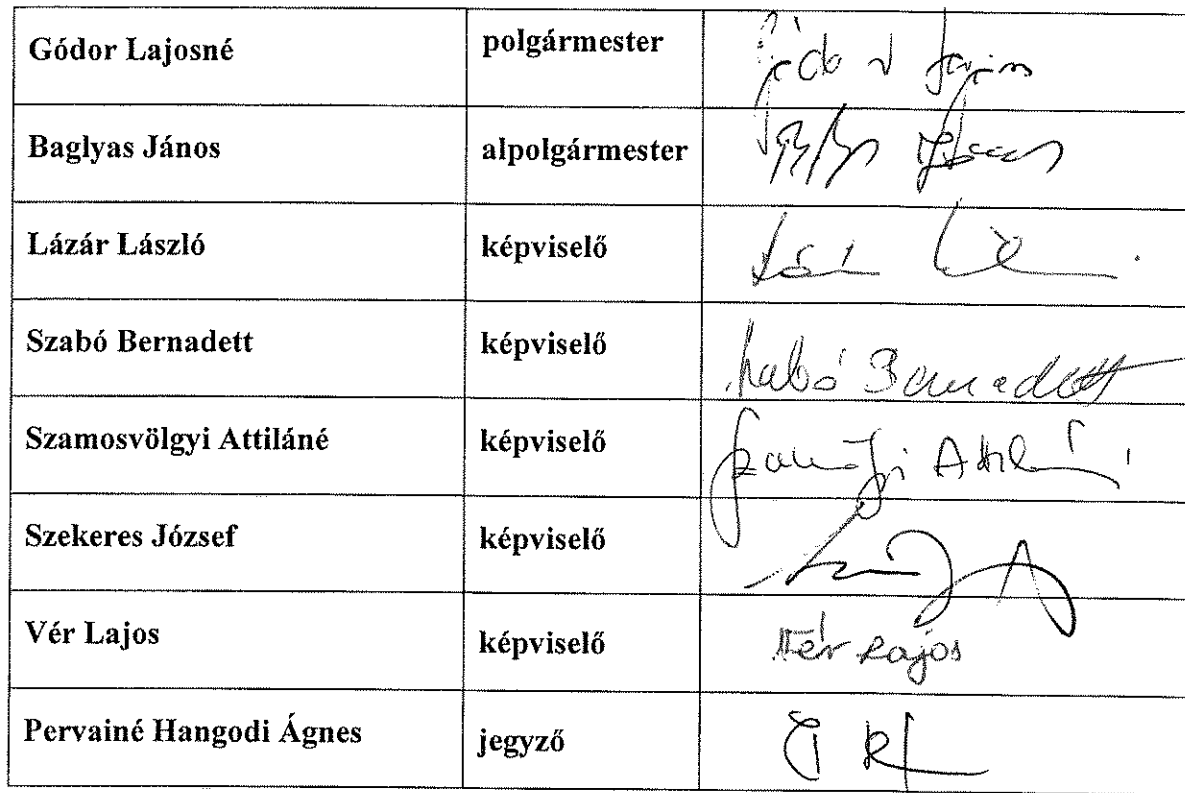 Gódor Lajosné polgármester
Baglyas János alpolgármester
Lázár László képviselő
Szabó Bernadett képviselő Szabó Bernadett
Szamosvölgyi Attiláné képviselő
Szekeres József képviselő
Vér Lajos képviselő Vér Lajos
Pervainé Hangodi Ágnes jegyző